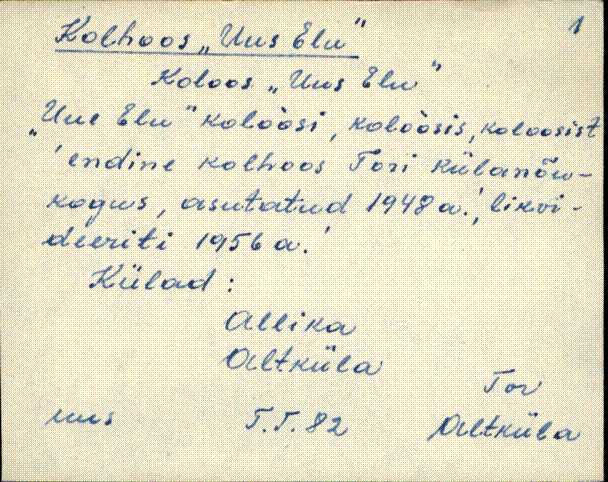 1
Kolhoos „Uus Elu”
Koloos „Uus Elu”
„Uue Elu” koloòsi, koloòsis, koloosist
'endine kolhoos Tori külanõu-
kogus, asutatud 1948 a., likvi-
deeriti 1956 a.'
Külad:
Allika
Altküla
Tor
uus T.T. 82 Altküla